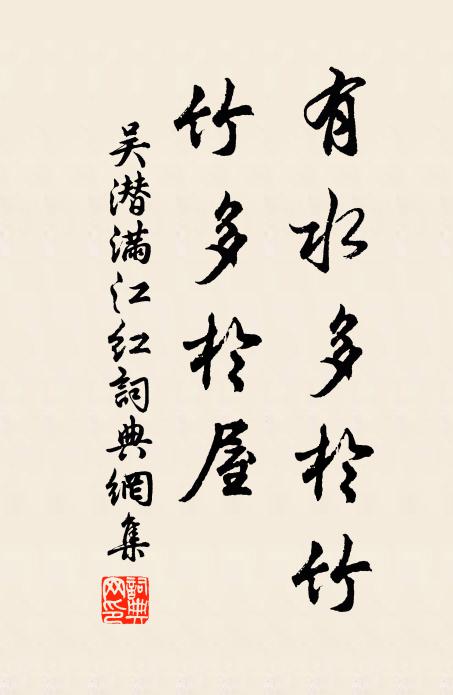 有水多於竹
竹多於屋
吴潜满江红詞典網集
詞典网印